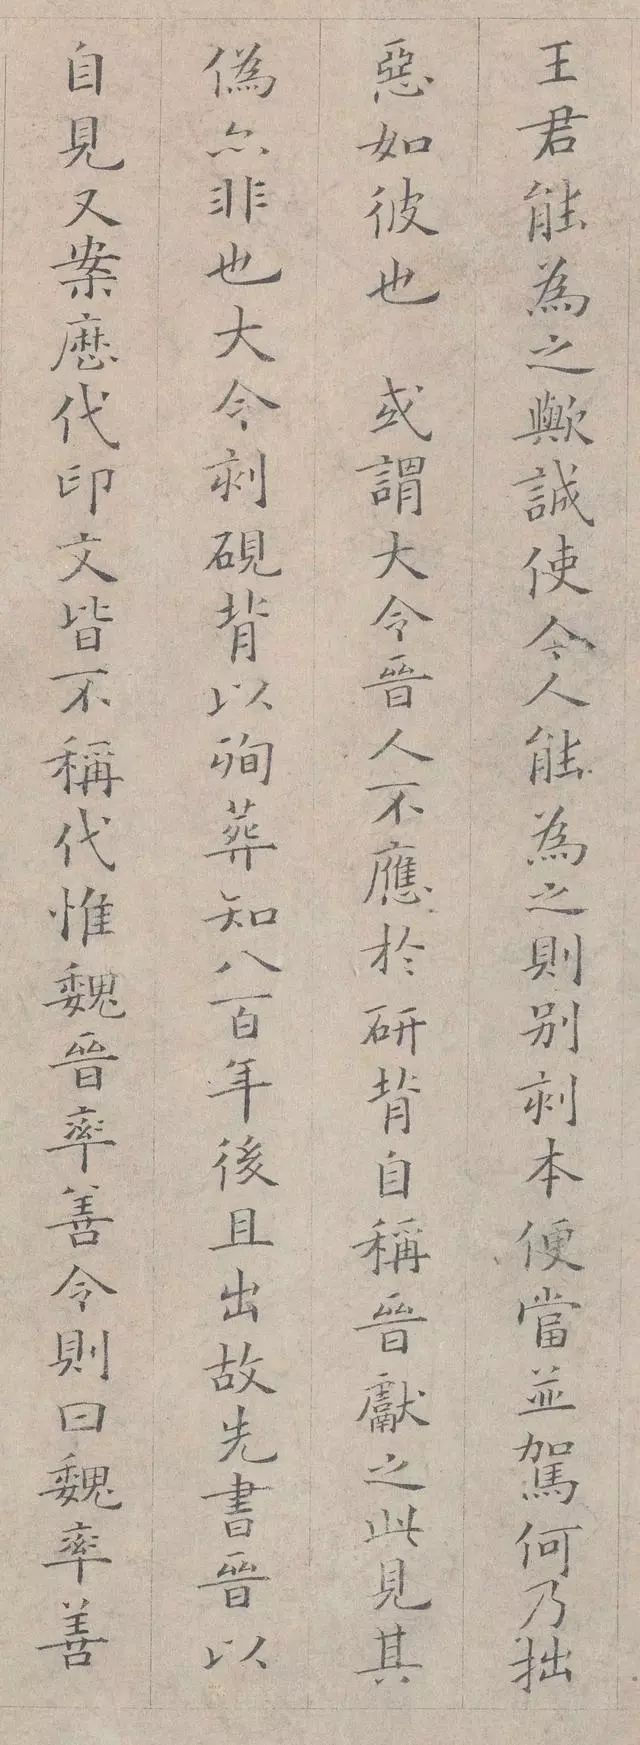 王君能為之歟誠使今人能為之則別刻本便當並駕何乃拙
惡如彼也　或謂大令晉人不應於研背自稱晉獻之此見其
偽亦非也大令刻硯背以殉葬知八百年後且出故先書晉以
自見又案歷代印文皆不稱代惟魏晉率善令則曰魏率善